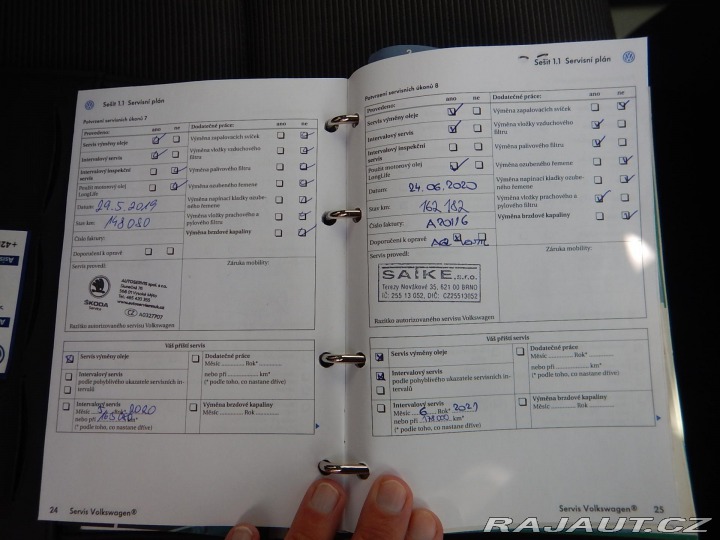 Sešit 1.1 Servisní plán
Potvrzení servisních úkonů 7
Provedeno: ano ne
Servis výměny oleje
Intervalový servis
Intervalový inspekční servis
Použit motorový olej LongLife
Datum: 29.5.2019
Stav km: 148080
Číslo faktury:
Doporučení k opravě
Servis provedl:
ŠKODA
Service
CZ A0327707
Razítko autorizovaného servisu Volkswagen
Dodatečné práce: ano ne
Výměna zapalovacích svíček
Výměna vložky vzduchového
filtru
Výměna palivového filtru
Výměna ozubeného řemene
Výměna napínací kladky ozube-
ného řemene
Výměna vložky prachového a
pylového filtru
Výměna brzdové kapaliny
Záruka mobility:
Váš příští servis
Servis výměny oleje
Intervalový servis
podle pohyblivého ukazatele servisních in-
tervalů
Intervalový servis
Měsíc 5 Rok* 2020
nebo při km*
(* podle toho, co nastane dříve)
Dodatečné práce
Měsíc Rok*
nebo při km*
(* podle toho, co nastane dříve)
Výměna brzdové kapaliny
Měsíc Rok
24 Servis Volkswagen®
Sešit 1.1 Servisní plán
Potvrzení servisních úkonů 8
Provedeno: ano ne
Servis výměny oleje
Intervalový servis
Intervalový inspekční
servis
Použit motorový olej
LongLife
Datum 24.06.2020
Stav km: 162 182
Číslo faktury: A20116
Doporučení k opravě
Servis provedl:
SAIKE s.r.o.
Terezy Novákové 35, 621 00 BRNO
IČ: 255 13 052, DIČ: CZ25513052
Razítko autorizovaného servisu Volkswagen
Dodatečné práce: ano ne
Výměna zapalovacích svíček
Výměna vložky vzduchového
filtru
Výměna palivového filtru
Výměna ozubeného řemene
Výměna napínací kladky ozube-
ného řemene
Výměna vložky prachového a
pylového filtru
Výměna brzdové kapaliny
Záruka mobility:
Váš příští servis
Servis výměny oleje
Intervalový servis
podle pohyblivého ukazatele servisních in-
tervalů
Intervalový servis
Měsíc 6 Rok* 2021
nebo při 178 000 km*
(* podle toho, co nastane dříve)
Dodatečné práce
Měsíc Rok*
nebo při km*
(* podle toho, co nastane dříve)
Výměna brzdové kapaliny
Měsíc Rok
Servis Volkswagen® 25
RAJAUT.CZ